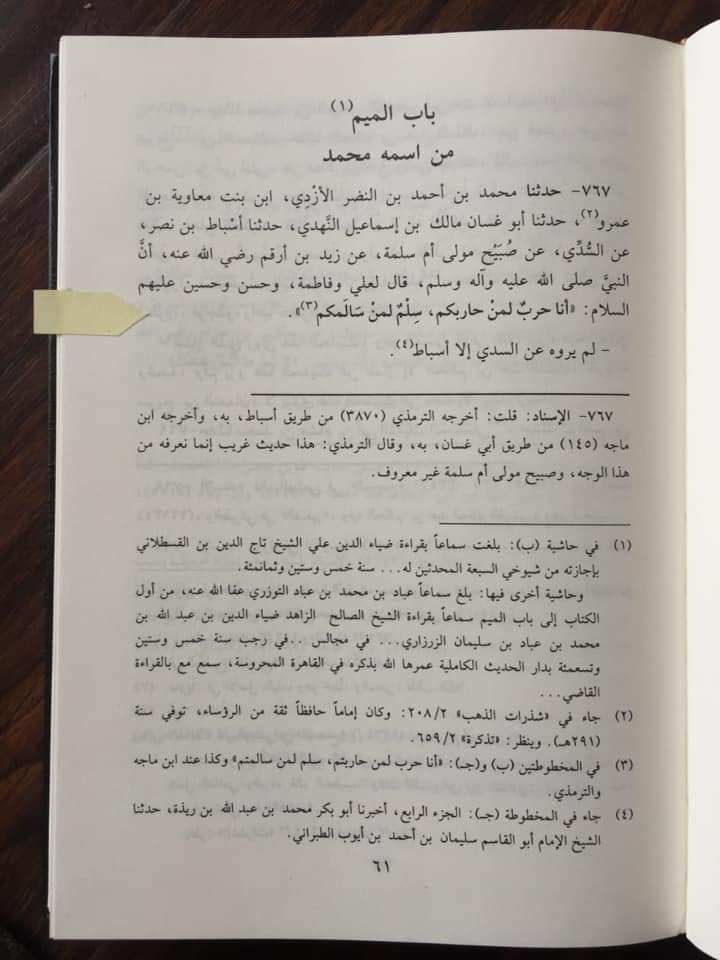 باب الميم(١)
من اسمه محمد
٧٦٧- حدثنا محمد بن أحمد بن النضر الأزْدِي، ابن بنت معاوية بن
عمرو(٢)، حدثنا أبو غسان مالك بن إسماعيل النَّهدي، حدثنا أسْباط بن نصر،
عن السُّدِّي، عن صُبَيْح مولى أم سلمة، عن زيد بن أرقم رضي الله عنه، أنَّ
النبيَّ صلى الله عليه وآله وسلم، قال لعلي وفاطمة، وحسن وحسين عليهم
السلام: «أنا حربٌ لمنْ حاربكم، سِلْمٌ لمنْ سَالَمكم(٣)».
- لم يروه عن السدي إلا أسباط(٤).
٧٦٧- الإسناد: قلت: أخرجه الترمذي (٣٨٧٠) من طريق أسباط، به، وأخرجه ابن
ماجه (١٤٥) من طريق أبي غسان، به، وقال الترمذي: هذا حديث غريب إنما نعرفه من
هذا الوجه، وصبيح مولى أم سلمة غير معروف.
(١) في حاشية (ب): بلغت سماعاً بقراءة ضياء الدين علي الشيخ تاج الدين بن القسطلاني
بإجازته من شيوخي السبعة المحدثين له... سنة خمس وستين وثمانمئة.
وحاشية أخرى فيها: بلغ سماعاً عباد بن محمد بن عباد التوزري عفا الله عنه، من أول
الكتاب إلى باب الميم سماعاً بقراءة الشيخ الصالح الزاهد ضياء الدين بن عبد الله بن
محمد بن عباد بن سليمان الزرزاري... في مجالس ..في رجب سنة خمس وستين
وتسعمئة بدار الحديث الكاملية عمرها الله بذكره في القاهرة المحروسة، سمع مع بالقراءة
القاضي...
(٢) جاء في «شذرات الذهب» ٢٠٨/٢: وكان إماماً حافظاً ثقة من الرؤساء، توفي سنة
(٢٩١هـ). وينظر: «تذكرة» ٦٥٩/٢.
(٣) في المخطوطتين (ب) و(جـ): «أنا حرب لمن حاربتم، سلم لمن سالمتم» وكذا عند ابن ماجه
والترمذي.
(٤) جاء في المخطوطة (جـ): الجزء الرابع، أخبرنا أبو بكر محمد بن عبد الله بن ريذة، حدثنا
الشيخ الإمام أبو القاسم سليمان بن أحمد بن أيوب الطبراني.
٦١